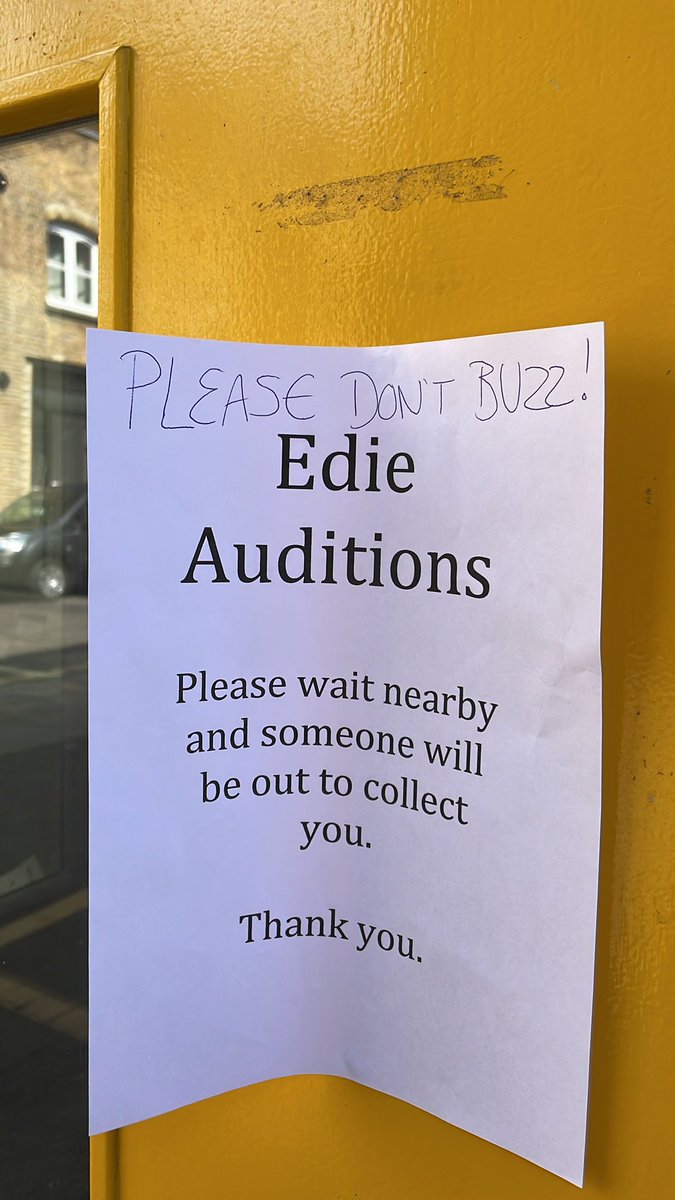 PLEASE DON'T BUZZ!
Edie
Auditions
Please wait nearby
and someone will
be out to collect
you.
Thank you.